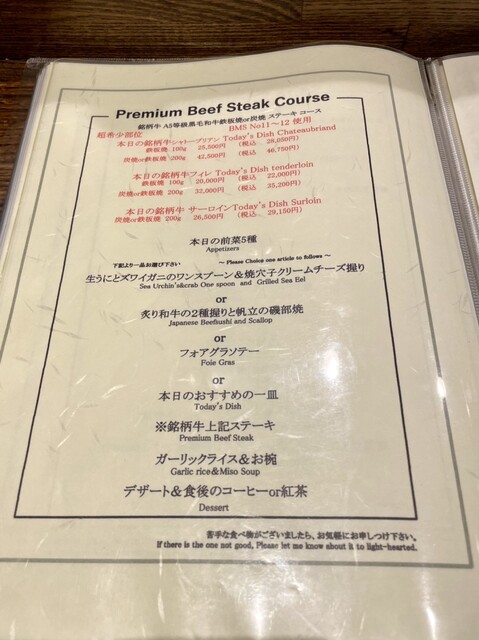 Premium Beef Steak Course
銘柄牛 A5等級黒毛和牛鉄板焼or炭焼 ステーキ コース
超希少部位 BMS No11～12 使用
本日の銘柄牛シャトーブリアン Today's Dish Chateaubriand
鉄板焼 100g 25,500円 (税込 28,050円)
炭焼or鉄板焼 200g 42,500円 (税込 46,750円)
本日の銘柄牛フィレ Today's Dish tenderloin
鉄板焼 100g 20,000円 (税込 22,000円)
炭焼or鉄板焼 200g 32,000円 (税込 35,200円)
本日の銘柄牛 サーロインToday's Dish Surloin
炭焼or鉄板焼 200g 26,500円 (税込 29,150円)
本日の前菜5種
Appetizers
下記より一品お選び下さい ～ Please Choice one article to follows ～
生うにとズワイガニのワンスプーン&焼穴子クリームチーズ握り
Sea Urchin's&crab One spoon and Grilled Sea Eel
or
炙り和牛の2種握りと帆立の磯部焼
Japanese Beefsushi and Scallop
or
フォアグラソテー
Foie Gras
or
本日のおすすめの一皿
Today's Dish
※銘柄牛上記ステーキ
Premium Beef Steak
ガーリックライス&お椀
Garlic rice&Miso Soup
デザート&食後のコーヒーor紅茶
Dessert
苦手な食べ物がございましたら、お気軽にお申しつけ下さい。
If there is the one not good, Please let me know about it to light-hearted.